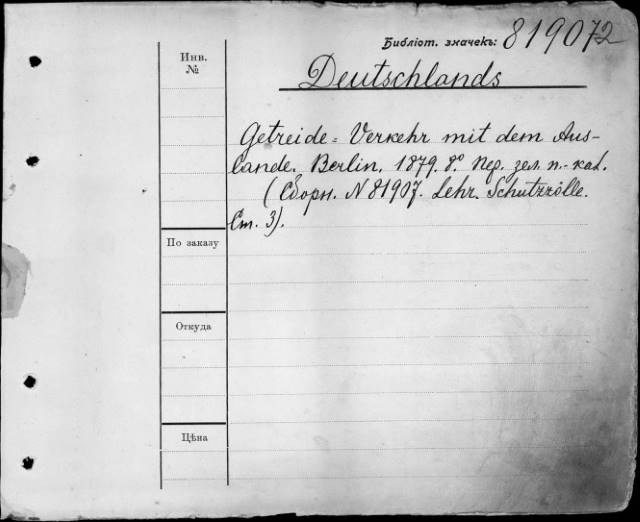 Библіот. значекъ: 819072
Инв.
№
Deutschlands
Getreide=Verkehr mit dem Aus-
lande. Berlin. 1879. 8º Пер. зел. п.-кал.
(Сборн. N 81907. Lehr. Schutzzölle.
Ст. 3).
По заказу
Откуда
Цѣна